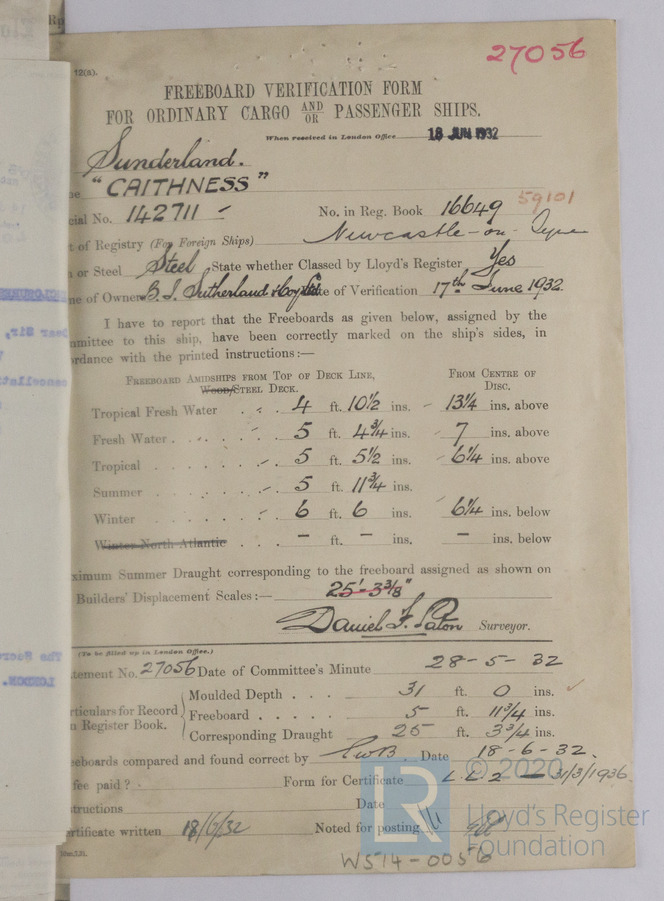 27056
12(a).
FREEBOARD VERIFICATION FORM
FOR ORDINARY CARGO AND/OR PASSENGER SHIPS.
When received in London Office 18 JUN 1932
Sunderland.
"CAITHNESS"
cial No. 142711 No. in Reg. Book 16649 59101
t of Registry (For Foreign Ships) Newcastle-on-Tyne
n or Steel Steel State whether Classed by Lloyd's Register Yes
me of Owner B. J. Sutherland & Coy Ltd Date of Verification 17th June 1932.
I have to report that the Freeboards as given below, assigned by the
mmittee to this ship, have been correctly marked on the ship's sides, in
rdance with the printed instructions:—
FREEBOARD AMIDSHIPS FROM TOP OF DECK LINE, FROM CENTRE OF
WOOD/STEEL DECK. DISC.
Tropical Fresh Water 4 ft. 10½ ins. 13¼ ins. above
Fresh Water 5 ft. 4¾ ins. 7 ins. above
Tropical 5 ft. 5½ ins. 6¼ ins. above
Summer 5 ft. 11¾ ins.
Winter 6 ft. 6 ins. 6¼ ins. below
Winter North Atlantic – ft. – ins. – ins. below
ximum Summer Draught corresponding to the freeboard assigned as shown on
Builders' Displacement Scales:— 25'-3⅜"
Daniel F. Paton Surveyor.
(To be filled up in London Office.)
tement No. 27056 Date of Committee's Minute 28-5-32
Moulded Depth 31 ft. 0 ins.
rticulars for Record
n Register Book. Freeboard 5 ft. 11¾ ins.
Corresponding Draught 25 ft. 3¾ ins.
eeboards compared and found correct by Date 18-6-32.
fee paid? Form for Certificate L.L.2 – 31/3/1936.
structions Date
ertificate written 18/6/32 Noted for posting
W514-0056
© 2020
LR
Lloyd's Register
Foundation